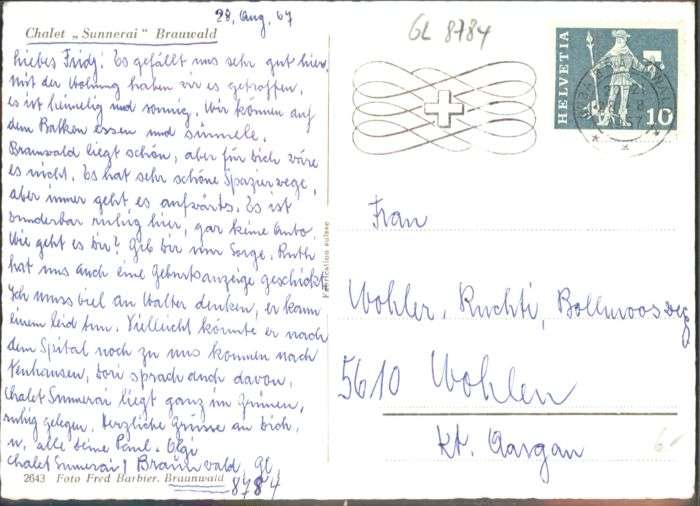 28. Aug. 67
GL 8784
Chalet „Sunnerai" Braunwald
Liebes Fridj! Es gefällt uns sehr gut hier,
mit der Wohnung haben wir es getroffen,
es ist heimelig und sonnig. Wir können auf
dem Balkon essen und sünnele.
Braunwald liegt schön, aber für dich wäre
es nicht. Es hat sehr schöne Spazierwege,
aber immer geht es aufwärts. Es ist
wunderbar ruhig hier, gar keine Auto.
Wie geht es dir? Gib dir nur Sorge. Ruth
hat uns auch eine Geburtsanzeige geschickt
Ich muss viel an Walter denken, er kann
einem leid tun. Vielleicht könnte er nach
dem Spital noch zu uns kommen nach
Dori sprach auch davon.
Chalet Sunnerai liegt ganz im Grünen,
ruhig gelegen. Herzliche Grüsse an dich,
u. alle deine Olgi
Chalet Sunnerai / Braunwald, Gl
8784
2643 Foto Fred Barbier. Braunwald
Fabrication suisse
HELVETIA
10
Frau
Wohler, Ruchti, Bollmoosweg
5610 Wohlen
Kt. Aargau
6.-